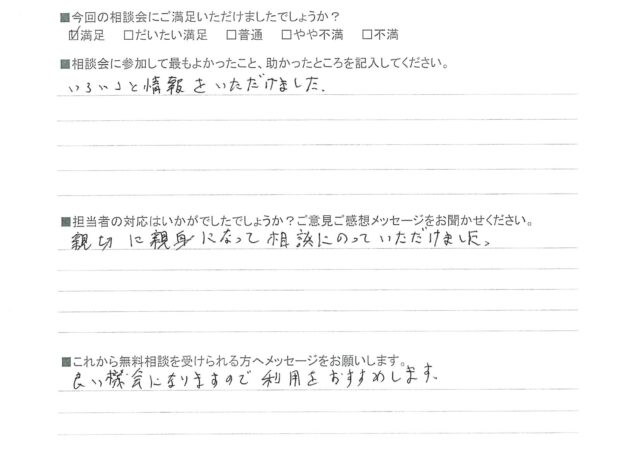 ■今回の相談会にご満足いただけましたでしょうか？
☑満足　□だいたい満足　□普通　□やや不満　□不満
■相談会に参加して最もよかったこと、助かったところを記入してください。
いろいろと情報をいただけました.
■担当者の対応はいかがでしたでしょうか？ご意見ご感想メッセージをお聞かせください。
親切に親身になって相談にのっていただけました。
■これから無料相談を受けられる方へメッセージをお願いします。
良い機会になりますので利用をおすすめします.